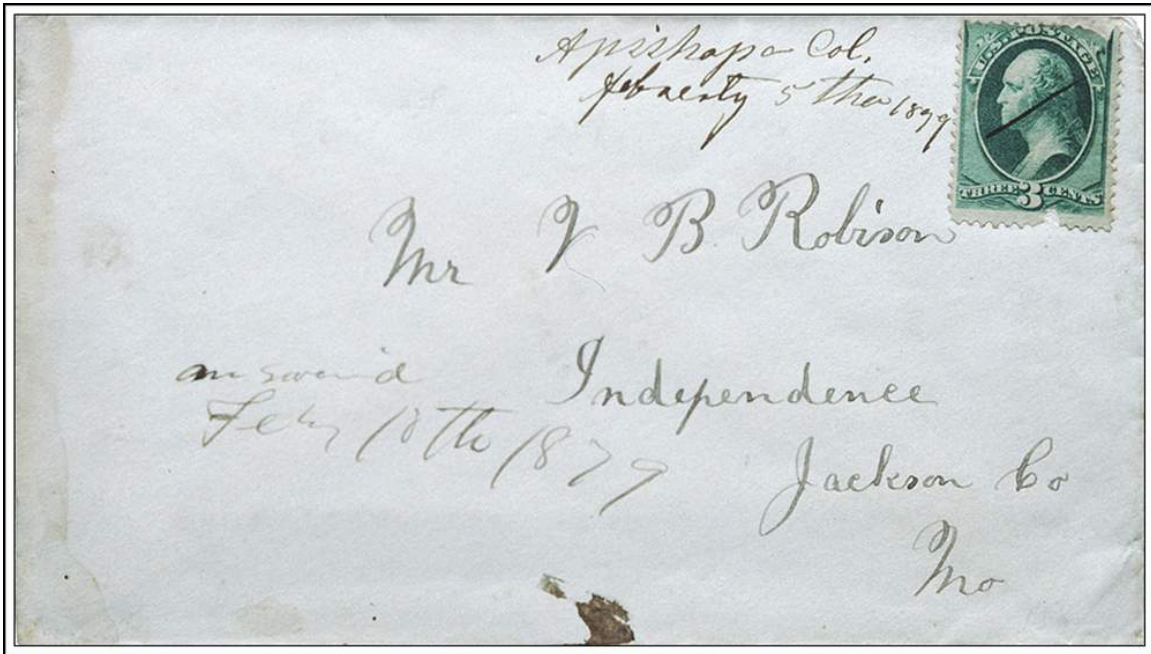 Apishapa Col.
5 tha 1879
U.S. POSTAGE
THREE 3 CENTS
Mr V B. Robison
answerd
Feby 18th 1879
Independence
Jackson Co
Mo